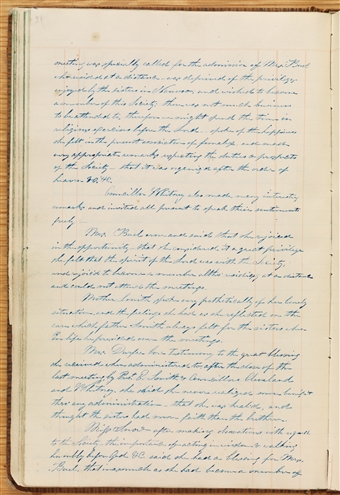 meeting was specially called for the admission of Mrs. Buel
who resided at a distance was deprived of the privileges
enjoy'd by the sisters in Nauvoo, and wished to become
a member of this Society there was not much business
to be attended to, therefore we might spend the time in
religious exercises before the Lord. spoke of the happiness
she felt in the present association of females and made
very appropriate remarks respecting the duties & prospects
of the Society— that it was organized after the order of
heaven &c. &c.
Councillor Whitney also made many interesting
remarks and invited all present to speak their sentiments
freely—
Mrs. Buel arose and said that she rejoiced
in the opportunity— that she considered it a great privilege
she felt that the spirit of the Lord was with the Society
and rejoic'd to become a member altho' residing at a distance
and could not attend the meetings.
Mother Smith spoke very pathetically of her lonely
situation, and the feelings she had as she reflected on the
care which father Smith always felt for the sisters when
in life he presided over the meetings.
Mrs. Durfee bore testimony to the great blessing
she received when administered to after the close of the
last meeting by Pres. E. Smith & Councillors Cleveland
and Whitney, she said she never realized more benefit
thro' any administration— that she was heal'd, and
thought the sisters had more faith than the brethren.
Miss Snow after making observations with regard
to the Society the importance of acting in wisdom & walking
humbly before God &c. said she had a blessing for Mrs.
Buel, that inasmuch as she had become a member of